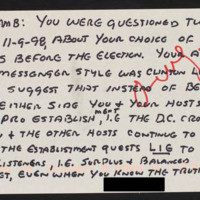 MB: YOU WERE QUESTIONED TW
11-9-98, ABOUT YOUR CHOICE OF
S BEFORE THE ELECTION. YOUR A
MESSENGER STYLE WAS CLINTON L
SUGGEST THAT INSTEAD OF BE
EITHER SIDE YOU + YOUR HOSTS
PRO ESTABLISHMENT, I.E THE D.C. CRO
+ THE OTHER HOSTS CONTINUE TO
THE ESTABLISHMENT GUESTS LIE TO
LISTENERS, I.E. SURPLUS + BALANCED
ST, EVEN WHEN YOU KNOW THE TRUTH